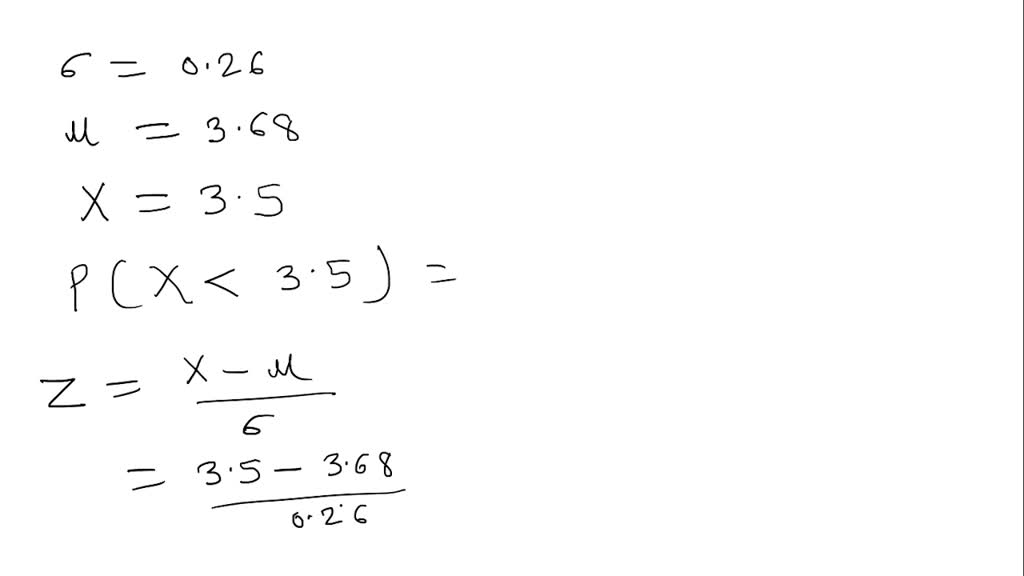 σ = 0.26
μ = 3.68
X = 3.5
P(X < 3.5) =
Z = X - μ / σ
= 3.5 - 3.68 / 0.26